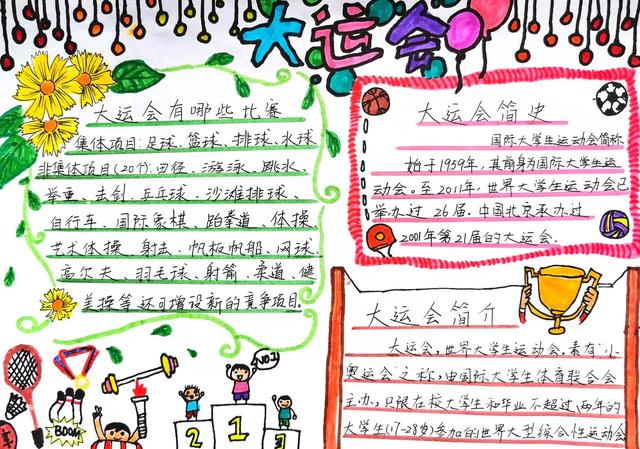 大运会
大运会有哪些比赛
集体项目:足球、篮球、排球、水球
非集体项目(20个):田径、游泳、跳水、
举重、击剑、乒乓球、沙滩排球、
自行车、国际象棋、跆拳道、体操、
艺术体操、射击、帆板帆船、网球、
高尔夫、羽毛球、射箭、柔道、健
美操等,还可增设新的竞争项目。
大运会简史
国际大学生运动会简称
始于1959年,其前身为国际大学生运
动会。至2011年,世界大学生运动会已
举办过26届.中国北京承办过
2001年第21届的大运会.
大运会简介
大运会,世界大学生运动会.素有“小
奥运会”之称,由国际大学生体育联合会
主办,只限在校大学生和毕业不超过两年的
大学生(17-28岁)参加的世界大型综合性运动会
NO.1
BOOM
2
1
3